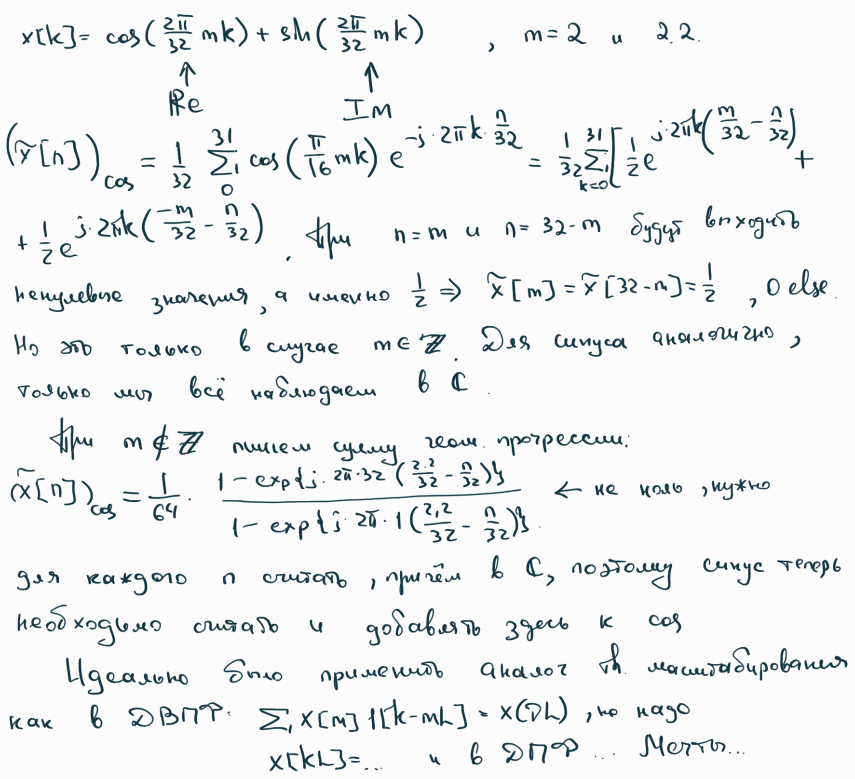 x[k] = cos(2π/32 mk) + sin(2π/32 mk) , m=2 и 2.2.
↑ ↑
Re Im
(x̃[n])cos = 1/32 ∑₀³¹ cos(π/16 mk) e^(-j·2πk·n/32) = 1/32 ∑_(k=0)^31 [1/2 e^(j·2πk(m/32 - n/32)) +
+ 1/2 e^(j·2πk(-m/32 - n/32)). При n=m и n=32-m будут выходить
ненулевые значения, а именно 1/2 ⇒ x̃[m] = x̃[32-m] = 1/2 , 0 else.
Но это только в случае m∈ℤ. Для синуса аналогично,
только мы всё наблюдаем в ℂ.
При m∉ℤ пишем сумму геом. прогрессии:
(x̃[n])cos = 1/64 · (1 - exp{j·2π·32(2.2/32 - n/32)}) / (1 - exp{j·2π·1(2,2/32 - n/32)}) ← не ноль, нужно
для каждого n считать, причём в ℂ, поэтому синус теперь
необходимо считать и добавлять здесь к cos
Идеально было применить аналог th. масштабирования
как в ДВПФ: ∑ x[m] 1[k-mL] = X(νL), но надо
x[kL]=... и в ДПФ ... Мечты...